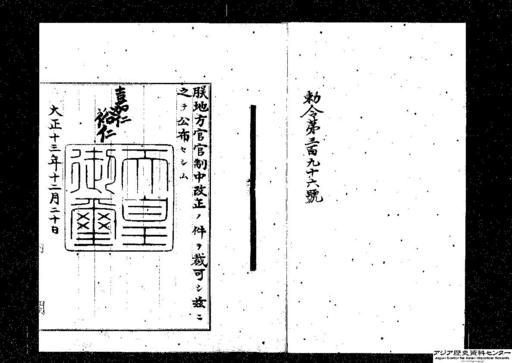 勅令第三百九十六號
朕地方官官制中改正ノ件ヲ裁可シ茲ニ
之ヲ公布セシム
嘉仁
裕仁
天皇
御璽
大正十三年十二月二十日
アジア歴史資料センター
Japan Center for Asian Historical Records